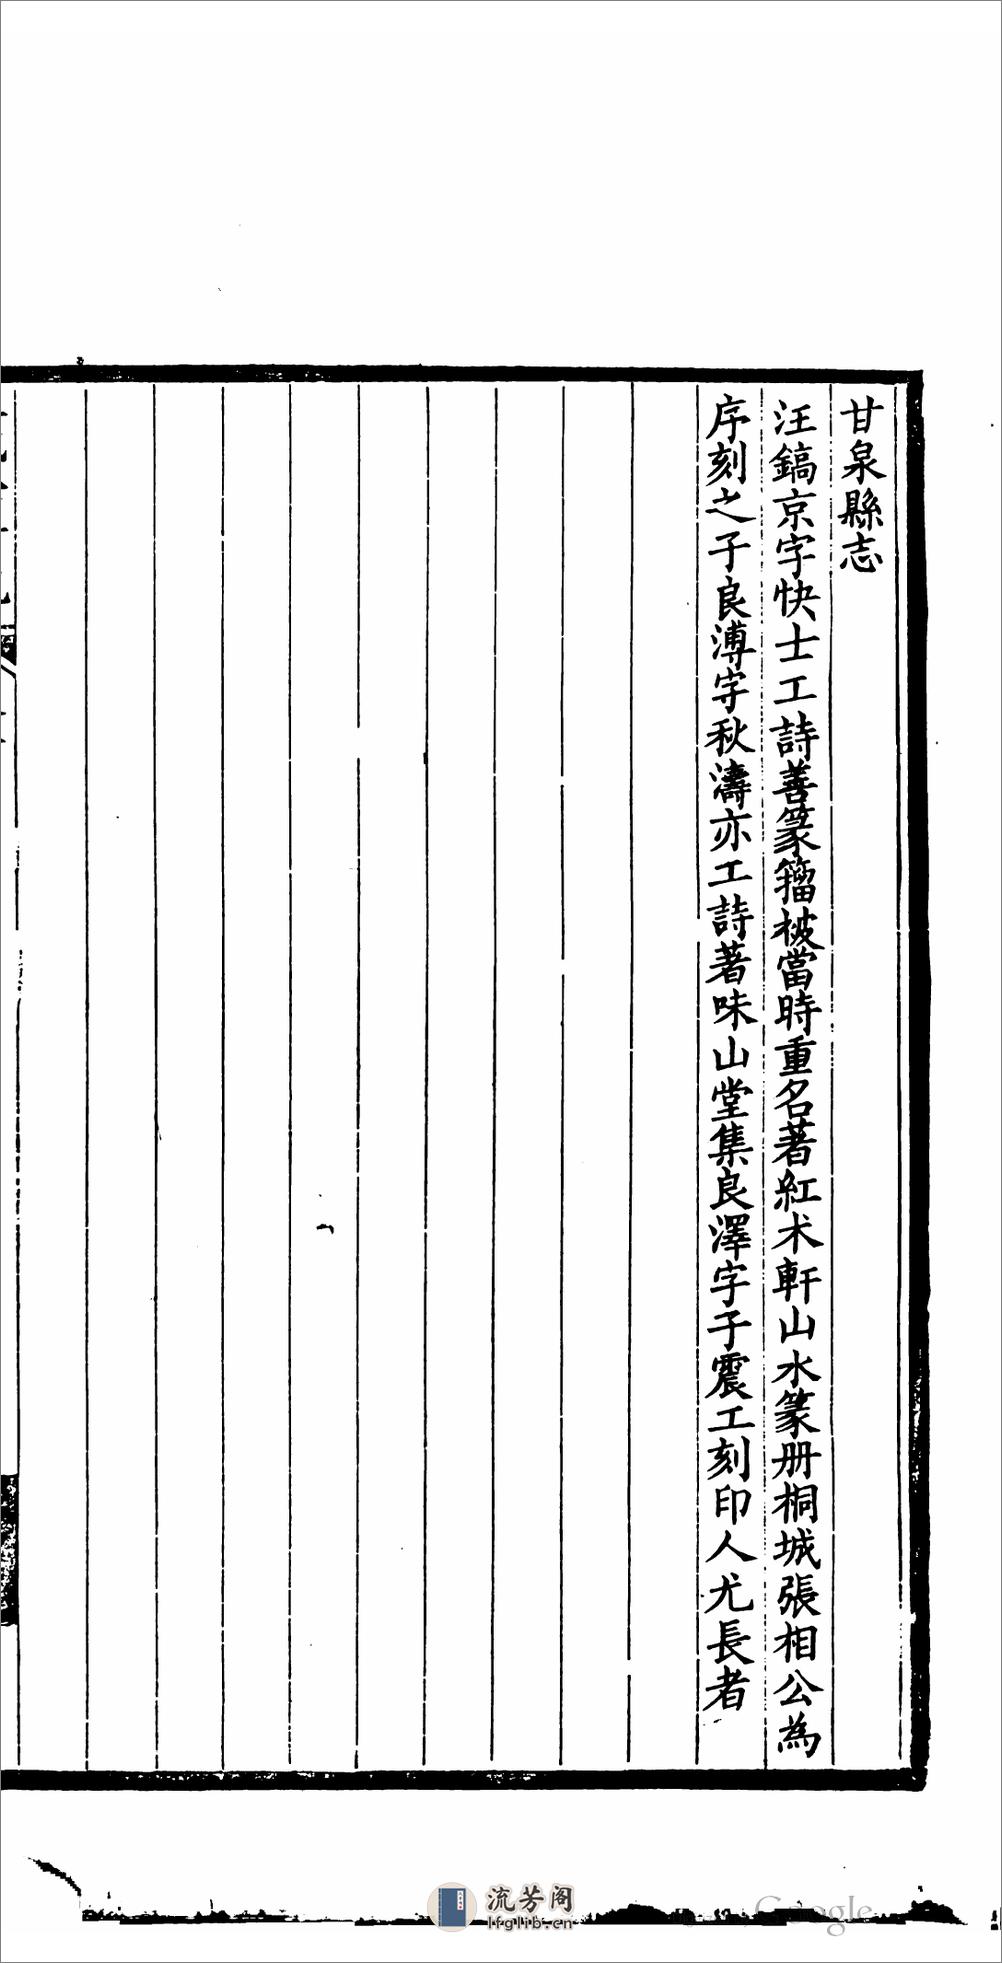 甘泉縣志
汪鎬京字快士工詩善篆籀被當時重名著紅术軒山水篆册桐城張相公為
序刻之子良溥字秋濤亦工詩著味山堂集良澤字子震工刻印人尤長者
流芳阁
lfglib.cn
Google